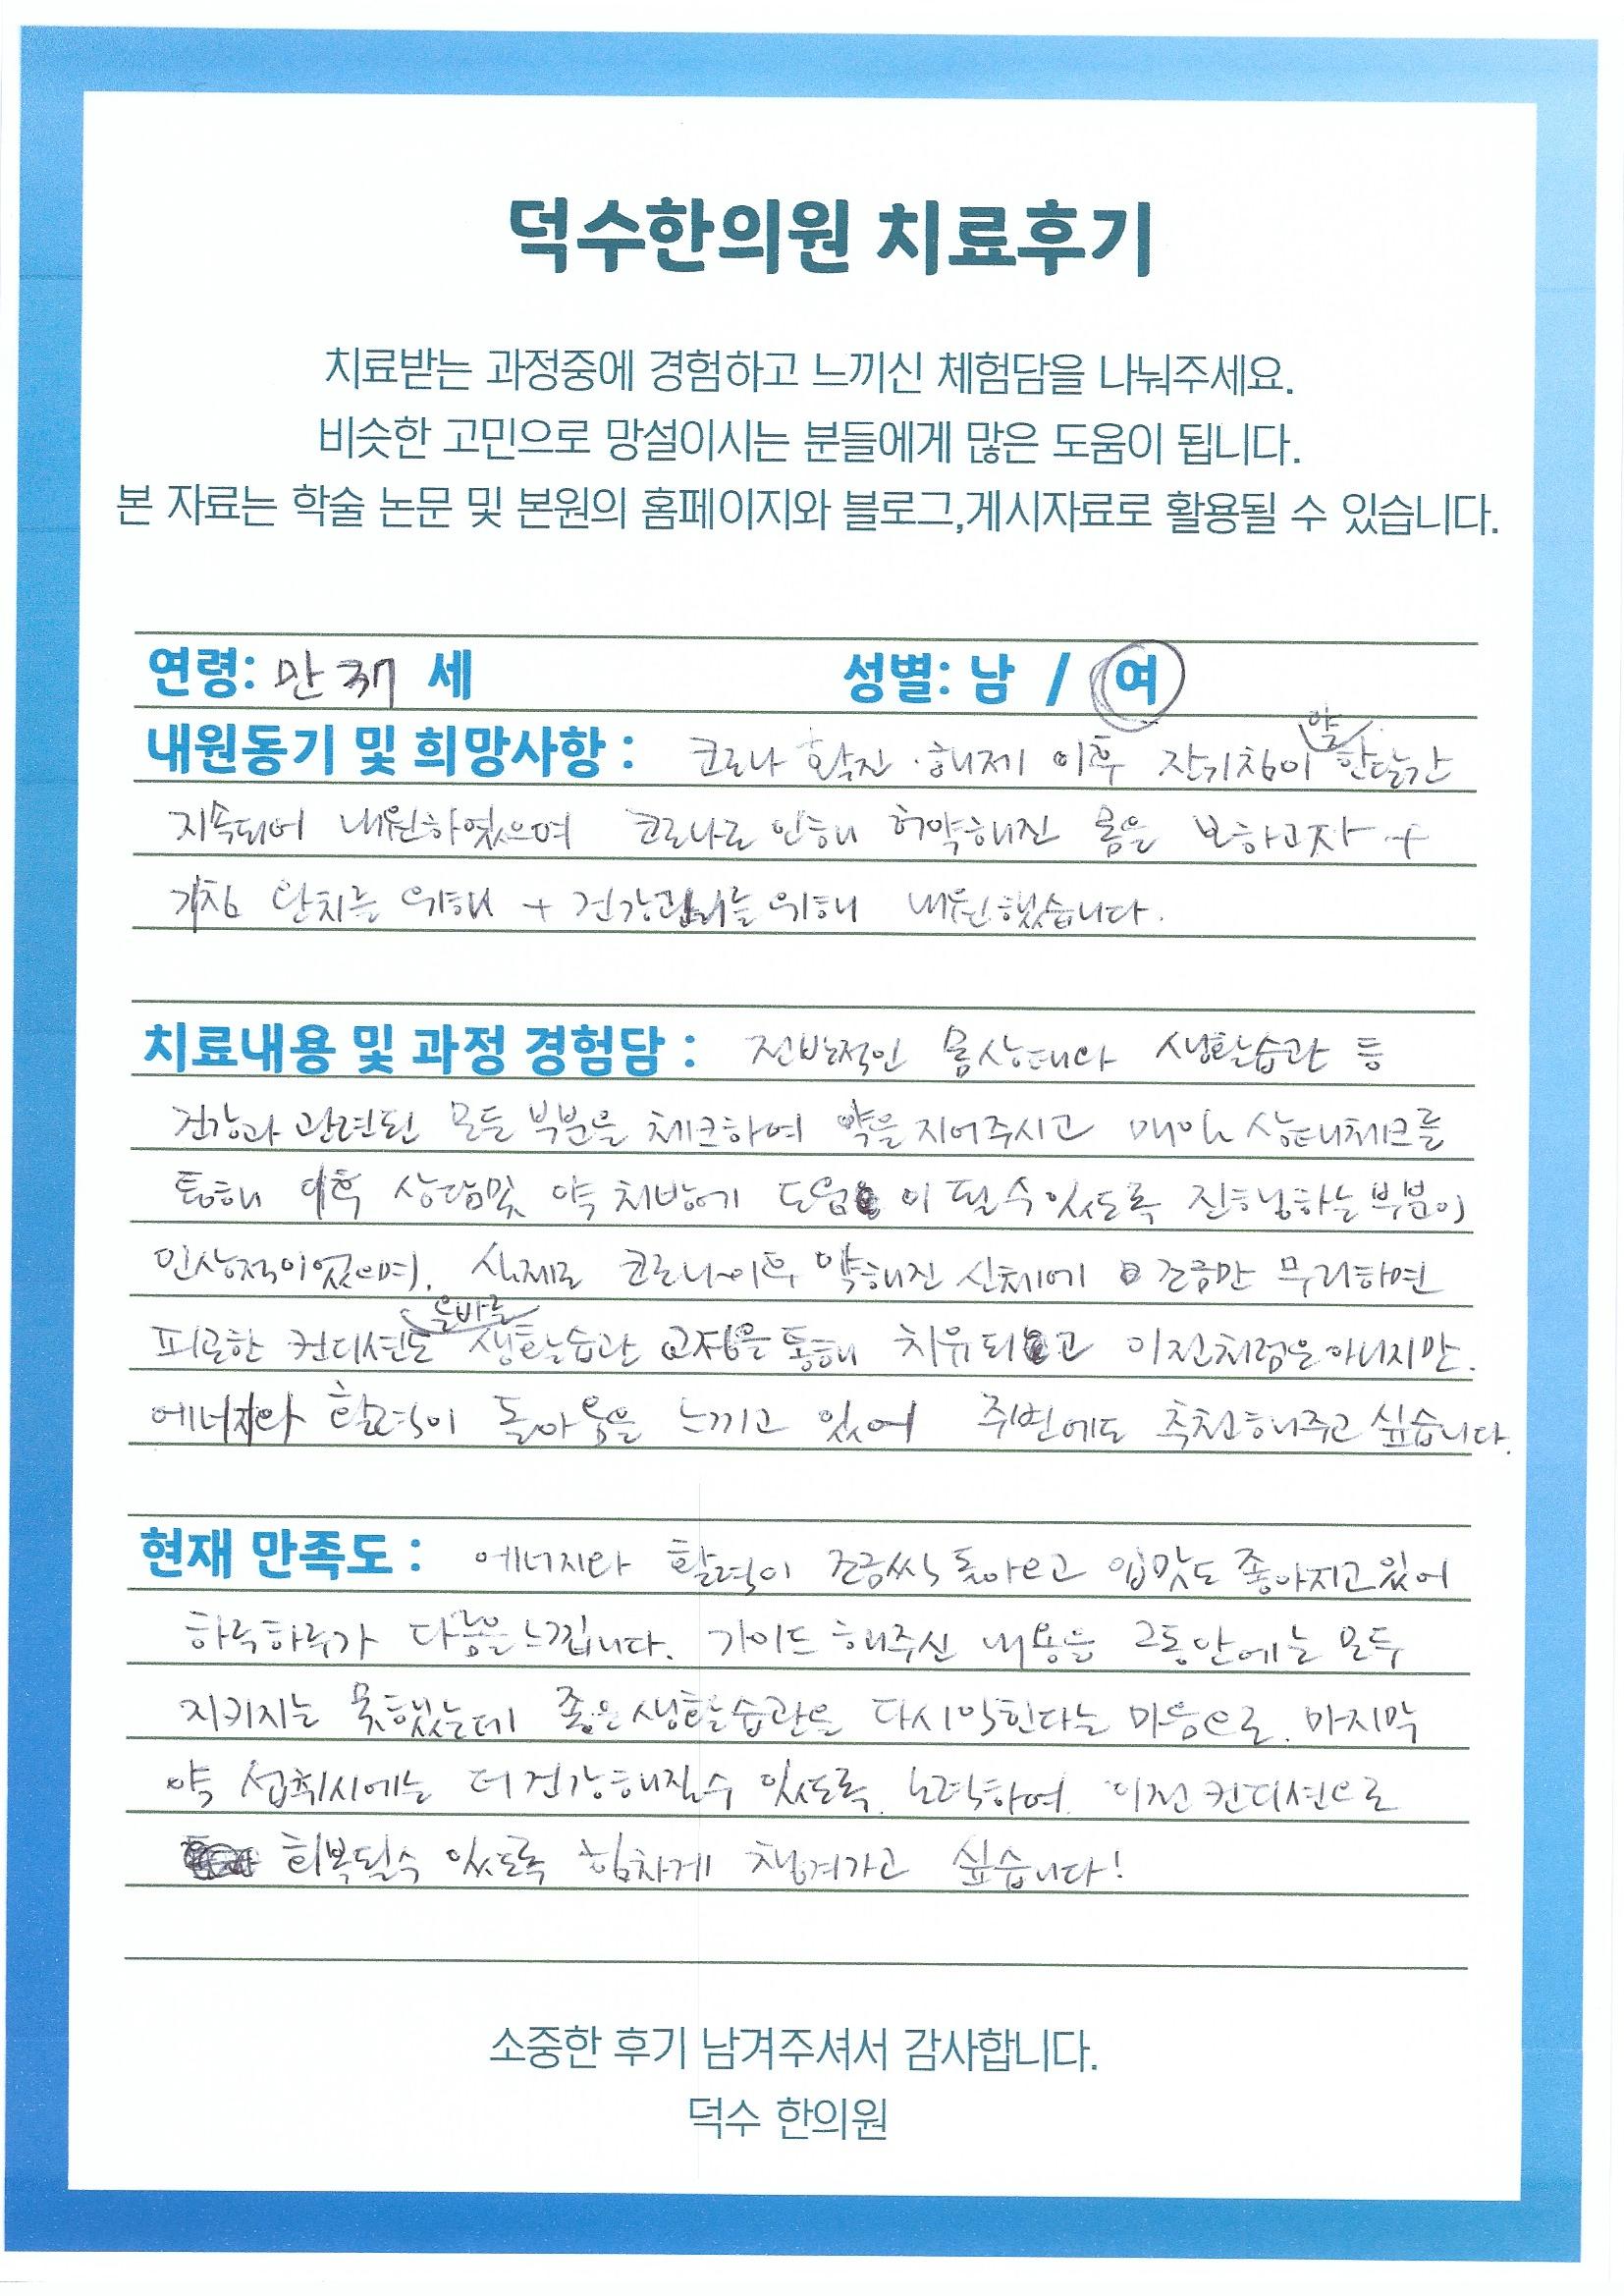 덕수한의원 치료후기
치료받는 과정중에 경험하고 느끼신 체험담을 나눠주세요.
비슷한 고민으로 망설이시는 분들에게 많은 도움이 됩니다.
본 자료는 학술 논문 및 본원의 홈페이지와 블로그,게시자료로 활용될 수 있습니다.
연령: 만 37 세 성별: 남 / 여
내원동기 및 희망사항 : 코로나 확진·해제 이후 잔기침이 약 한달간
지속되어 내원하였으며 코로나로 인해 허약해진 몸을 보하고자 +
기침 완치를 위해 + 건강관리를 위해 내원했습니다.
치료내용 및 과정 경험담 : 전반적인 몸상태와 생활습관 등
건강과 관련된 모든 부분을 체크하여 약을 지어주시고 매일 상태체크를
통해 이후 상담및 약 처방에 도움이 될 수 있도록 진행하는 부분이
인상적이었으며, 실제로 코로나이후 약해진 신체에 조금만 무리하면
피로한 컨디션도 올바른 생활습관 교정을 통해 치유되고 이전처럼은아니지만.
에너지와 활력이 돌아옴을 느끼고 있어 주변에도 추천해주고 싶습니다.
현재 만족도 : 에너지와 활력이 조금씩 돌아오고 입맛도 좋아지고있어
하루하루가 다름을 느낍니다. 가이드 해주신 내용을 그동안에는 모두
지키지는 못했는데 좋은 생활습관을 다시익힌다는 마음으로. 마지막
약 섭취시에는 더 건강해질수 있도록 노력하여 이전 컨디션으로
회복될수 있도록 힘차게 챙겨가고 싶습니다!
소중한 후기 남겨주셔서 감사합니다.
덕수 한의원